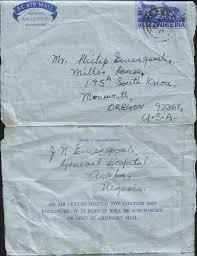 BY AIR MAIL
AIR LETTER
NIGERIA
Mr. Philip Emeagwali,
Miller House,
195A South Knox,
Monmouth,
OREGON 97361,
U.S.A.
J.N. Emeagwali,
General Hospital,
Asaba,
Nigeria.
AN AIR LETTER SHOULD NOT CONTAIN ANY
ENCLOSURE; IF IT DOES IT WILL BE SURCHARGED
OR SENT BY ORDINARY MAIL.